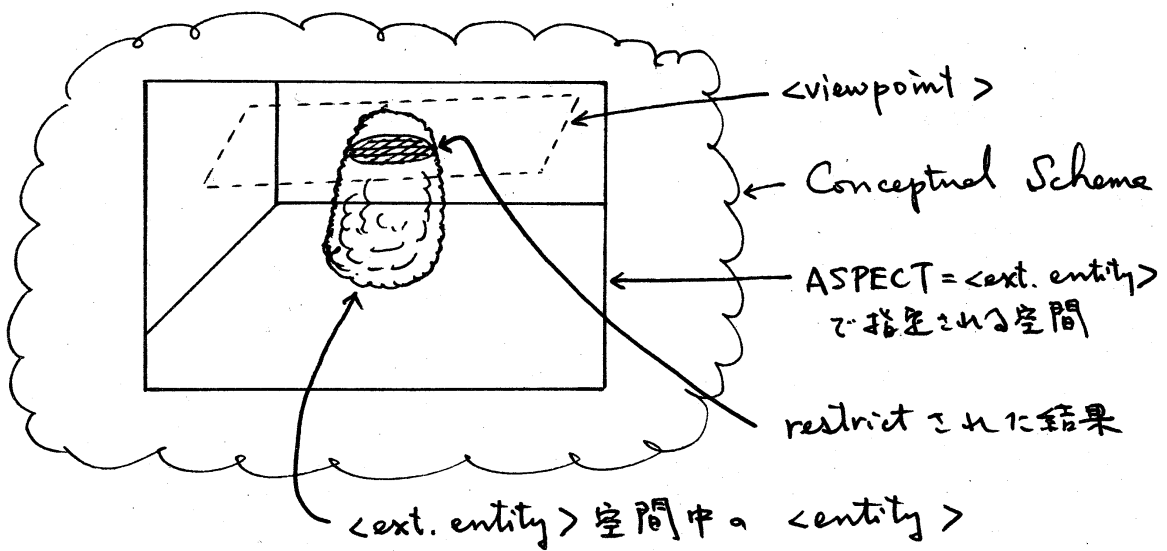 <viewpoint>
Conceptual Schema
ASPECT=<ext. entity>
で指定される空間
restrictされた結果
<ext. entity>空間中の <entity>